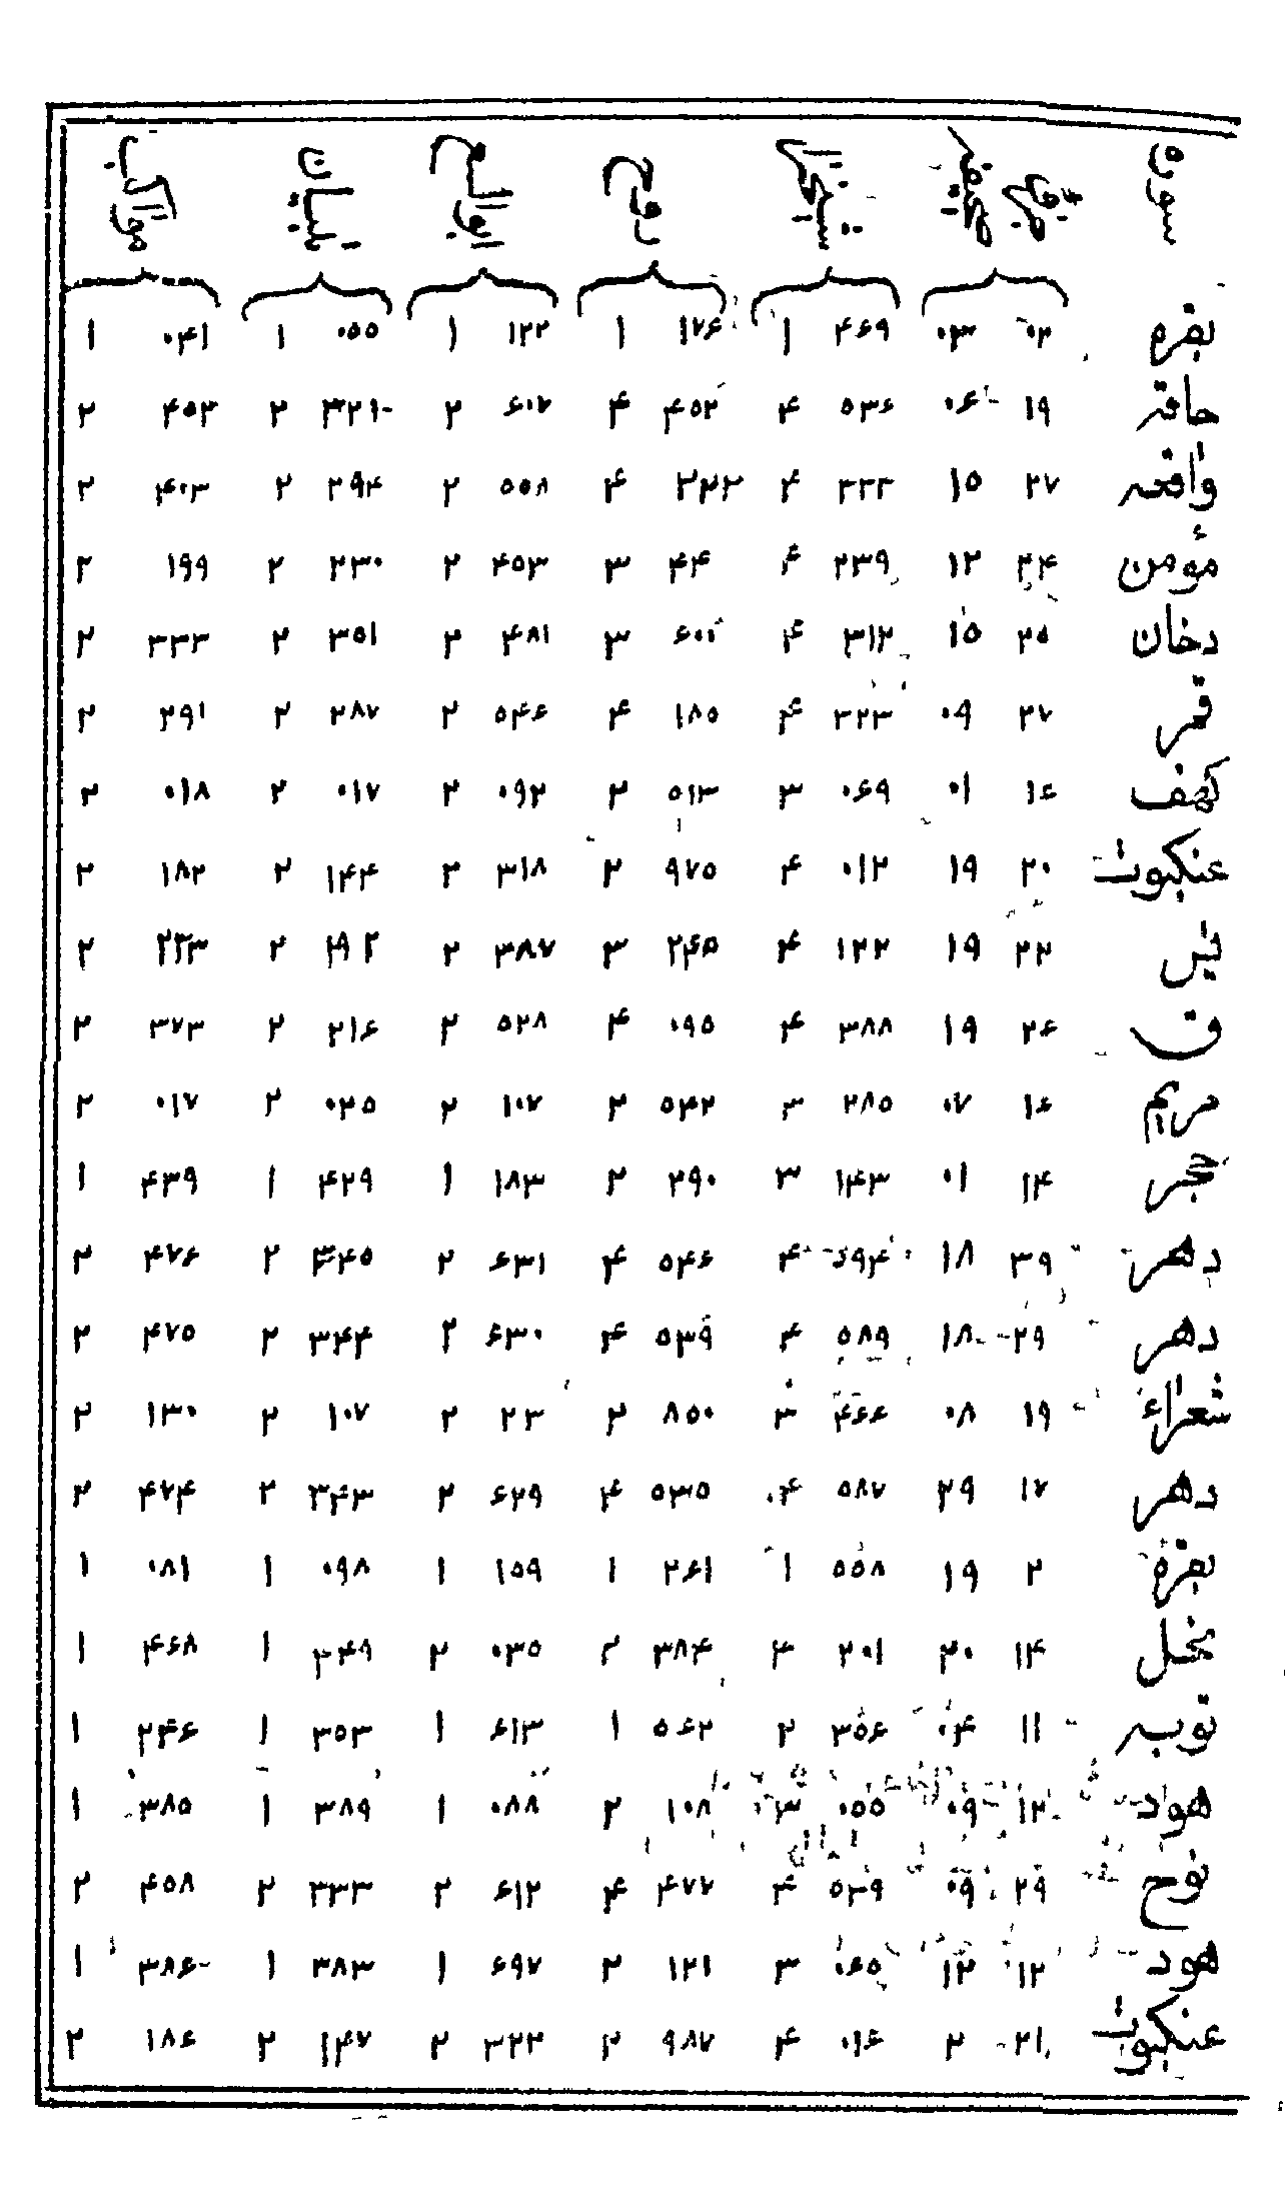 سوره جزو صفحه شیخزاده روح ابوالسعود تبیان مواکب
بقره ۰۲ ۰۳ ۴۶۹ ۱ ۱۷۶ ۱ ۱۲۲ ۱ ۰۵۵ ۱ ۰۴۱ ۱
حاقه ۱۹ ۰۶ ۵۳۶ ۴ ۴۵۲ ۴ ۶۰۷ ۲ ۳۲۱ ۲ ۴۵۳ ۲
واقعه ۲۷ ۱۵ ۳۳۳ ۴ ۲۲۲ ۴ ۵۵۸ ۲ ۲۹۴ ۲ ۴۰۳ ۲
مؤمن ۲۴ ۱۲ ۲۳۹ ۴ ۴۴ ۳ ۴۵۳ ۲ ۲۳۰ ۲ ۱۹۹ ۲
دخان ۲۵ ۱۵ ۳۱۲ ۴ ۶۰۱ ۳ ۴۸۱ ۲ ۲۵۱ ۲ ۳۳۳ ۲
قمر ۲۷ ۰۹ ۳۲۳ ۴ ۱۸۵ ۴ ۵۴۶ ۲ ۲۸۷ ۲ ۲۹۱ ۲
کهف ۱۶ ۰۱ ۰۶۹ ۳ ۵۱۳ ۲ ۰۹۲ ۲ ۰۱۷ ۲ ۰۱۸ ۲
عنکبوت ۲۰ ۱۹ ۰۱۲ ۴ ۹۷۵ ۲ ۳۱۸ ۲ ۱۴۴ ۲ ۱۸۲ ۲
یس ۲۲ ۱۹ ۱۲۲ ۴ ۲۴۵ ۳ ۳۸۷ ۲ ۱۹۲ ۲ ۲۳۳ ۲
ق ۲۶ ۱۹ ۳۸۸ ۴ ۰۹۵ ۴ ۵۲۸ ۲ ۲۱۶ ۲ ۳۷۳ ۲
مریم ۱۶ ۰۷ ۲۸۵ ۳ ۵۴۲ ۲ ۱۰۷ ۲ ۰۲۵ ۲ ۰۱۷ ۲
حجر ۱۴ ۰۱ ۱۴۳ ۳ ۲۹۰ ۲ ۱۸۳ ۱ ۴۲۹ ۱ ۴۳۹ ۱
دهر ۳۹ ۱۸ ۵۹۴ ۴ ۵۴۶ ۴ ۶۳۱ ۲ ۳۴۵ ۲ ۴۷۶ ۲
دهر ۲۹ ۱۸ ۵۸۹ ۴ ۵۳۹ ۴ ۶۳۰ ۲ ۳۴۴ ۲ ۴۷۵ ۲
شعراء ۱۹ ۰۸ ۴۶۶ ۳ ۸۵۰ ۲ ۲۳ ۲ ۱۰۷ ۲ ۱۳۰ ۲
دهر ۱۷ ۲۹ ۵۸۷ ۴ ۵۳۵ ۴ ۶۲۹ ۲ ۳۴۳ ۲ ۴۷۴ ۲
بقرة ۲ ۱۹ ۵۵۸ ۱ ۲۶۱ ۱ ۱۵۹ ۱ ۰۹۸ ۱ ۰۸۱ ۱
نحل ۱۴ ۲۰ ۲۰۱ ۳ ۳۸۴ ۲ ۰۳۵ ۲ ۲۴۹ ۱ ۴۶۸ ۱
توبه ۱۱ ۰۴ ۳۵۶ ۲ ۵۶۲ ۱ ۶۱۳ ۱ ۳۵۳ ۱ ۲۴۶ ۱
هود ۱۲ ۰۹ ۰۵۵ ۳ ۱۰۸ ۲ ۰۸۸ ۱ ۳۸۹ ۱ ۳۸۵ ۱
نوح ۲۹ ۰۹ ۵۳۹ ۴ ۴۷۷ ۴ ۶۱۲ ۲ ۳۳۳ ۲ ۴۵۸ ۲
هود ۱۲ ۱۲ ۰۶۵ ۳ ۱۲۱ ۲ ۶۹۷ ۱ ۳۸۳ ۱ ۳۸۶ ۱
عنکبوت ۲۱ ۲ ۰۱۶ ۴ ۹۸۷ ۲ ۳۲۲ ۲ ۱۴۷ ۲ ۱۸۶ ۲